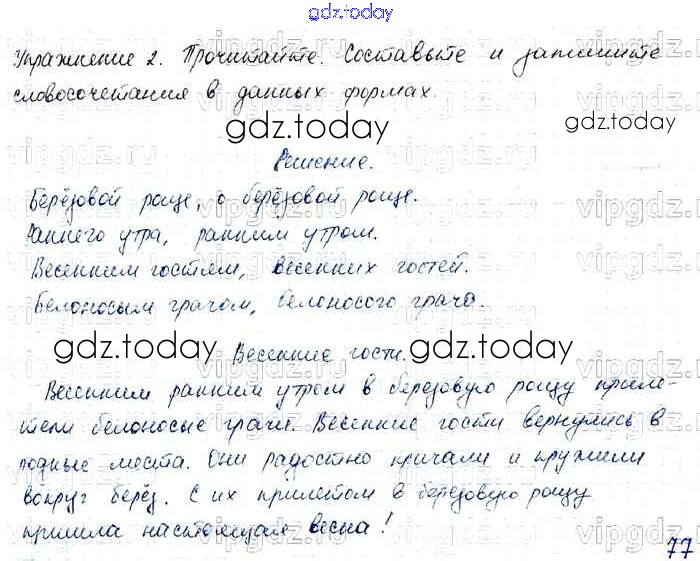 gdz.today
Упражнение 2. Прочитайте. Составьте и запишите
словосочетания в данных формах.
gdz.today
gdz.today
Решение.
Берёзовой роще, о берёзовой роще.
Раннего утра, ранним утром.
Весенним гостям, весенних гостей.
Белоносым грачом, белоносого грача.
gdz.today
Весенние гости.
gdz.today
Весенним ранним утром в березовую рощу приле-
тели белоносые грачи. Весенние гости вернулись в
родные места. Они радостно кричали и кружили
вокруг берёз. С их прилетом в березовую рощу
пришла настоящая весна!
77